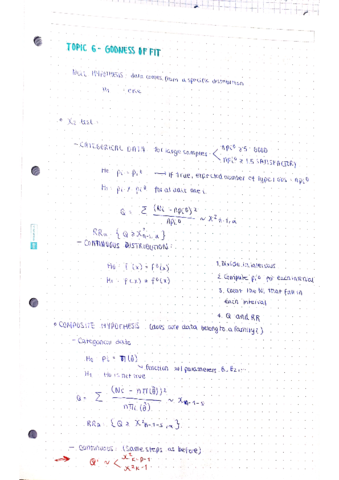 TOPIC 6 - GODNESS OF FIT
NULL HYPOTHESIS: data comes from a specific distribution
H1
• X2 test:
- CATEGORICAL DATA for large samples npi0 ≥ 5 : GOOD
npi0 ≥ 1.5 : SATISFACTORY
H0: pi = pi0 → if true, expected number of type i obs = npi0
H1: pi ≠ pi0 for at least one i.
Q = Σ (Ni - npi0)² / npi0 ~ X²
RRα: {Q ≥ X²}
- CONTINUOUS DISTRIBUTION:
H0: F(x) = F0(x)
H1: F(x) ≠ F0(x)
1. Divide in intervals
2. Compute pi0 for each interval
3. Count the Ni that fall in
each interval
4. Q and RR
• COMPOSITE HYPOTHESIS. (does are data belong to a family?)
- Categorical data
H0: pi = π(θ)
function w/ parameters θ1, θ2...
H1: H0 is not true
Q = Σ (Ni - nπ(θ̂))² / nπi(θ̂) ~ X
RRα: {Q ≥ X²}
- Continuous: (same steps as before)
→ Q ~